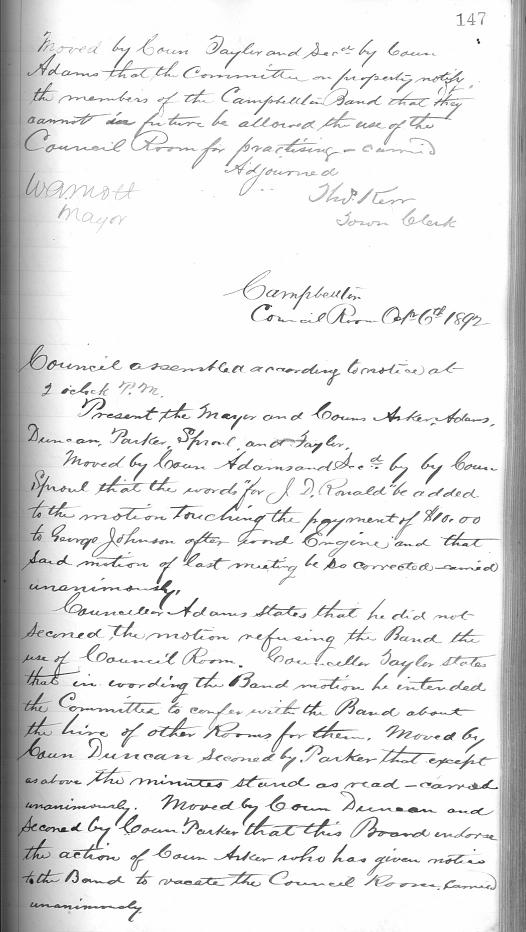 147
Moved by Coun Taylor and Secd by Coun
Adams that the Committee on property notify
the members of the Campbellton Band that they
cannot in future be allowed the use of the
Council Room for practising – carried
Adjourned
Thos. Kerr
Mayor
Town Clerk
Campbellton
Council Room Oct 6th 1892
Council assembled according to notice at
2 oclock P.M.
Present the Mayor and Couns Asker, Adams,
Duncan, Parker, Sproul, and Taylor.
Moved by Coun Adams and Secd by by Coun
Sproul that the words "for J. D. Ronald" be added
to the motion touching the payment of $10.00
to George Johnson after word Engine and that
said motion of last meeting be so corrected – carried
unanimously.
Councillor Adams states that he did not
second the motion refusing the Band the
use of Council Room. Councillor Taylor states
that in wording the Band motion he intended
the Committee to confer with the Band about
the hire of other Rooms for them. Moved by
Coun Duncan seconed by Parker that except
as above the minutes stand as read – carried
unanimously. Moved by Coun Duncan and
seconed by Coun Parker that this Board endorse
the action of Coun Asker who has given notice
to the Band to vacate the Council Room. Carried
unanimously